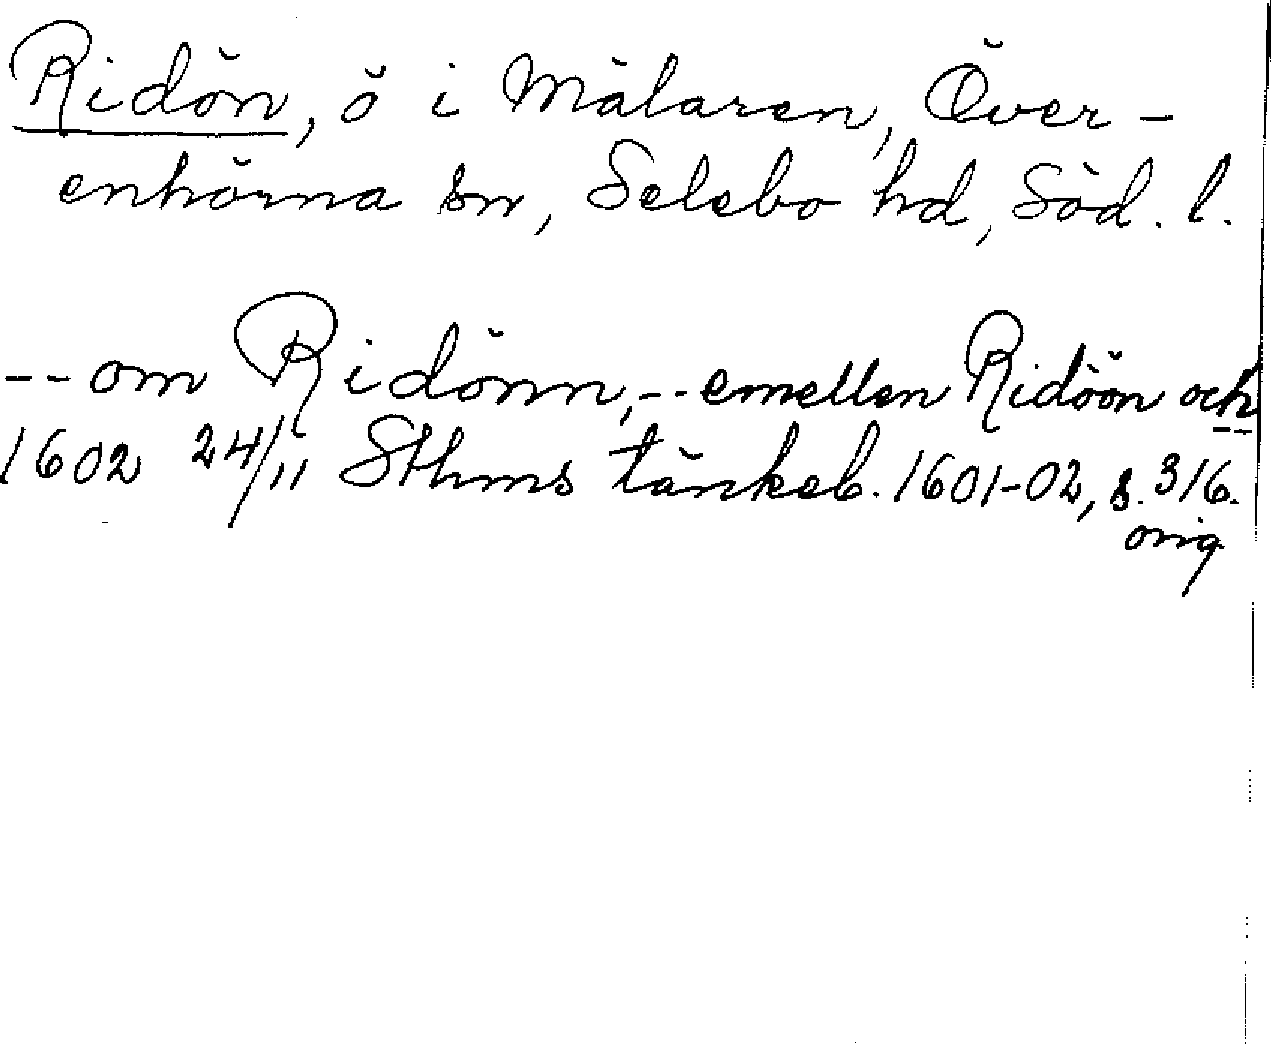 Ridön, ö i Mälaren, Över-
enhörna sn, Selebo hd, Söd. l.
-- om Ridönn, -- emellen Ridöön och --
1602 24/11 Sthms tänkeb. 1601-02, s. 316.
orig